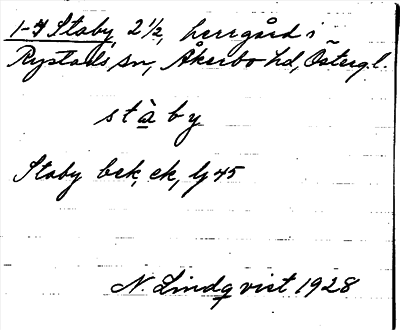 1-4 Staby 2 1/2, herrgård i
Rystads sn, Åkerbo hd, Östergl.
stàby
Staby bek, ek, lj 45
N. Lindqvist 1928